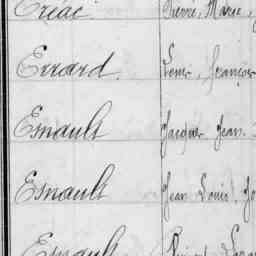 Creac Pierre, Marie,
Errard. Louis, François
Esnault Jacques Jean
Esnault Jean Louis Jo
Esnault